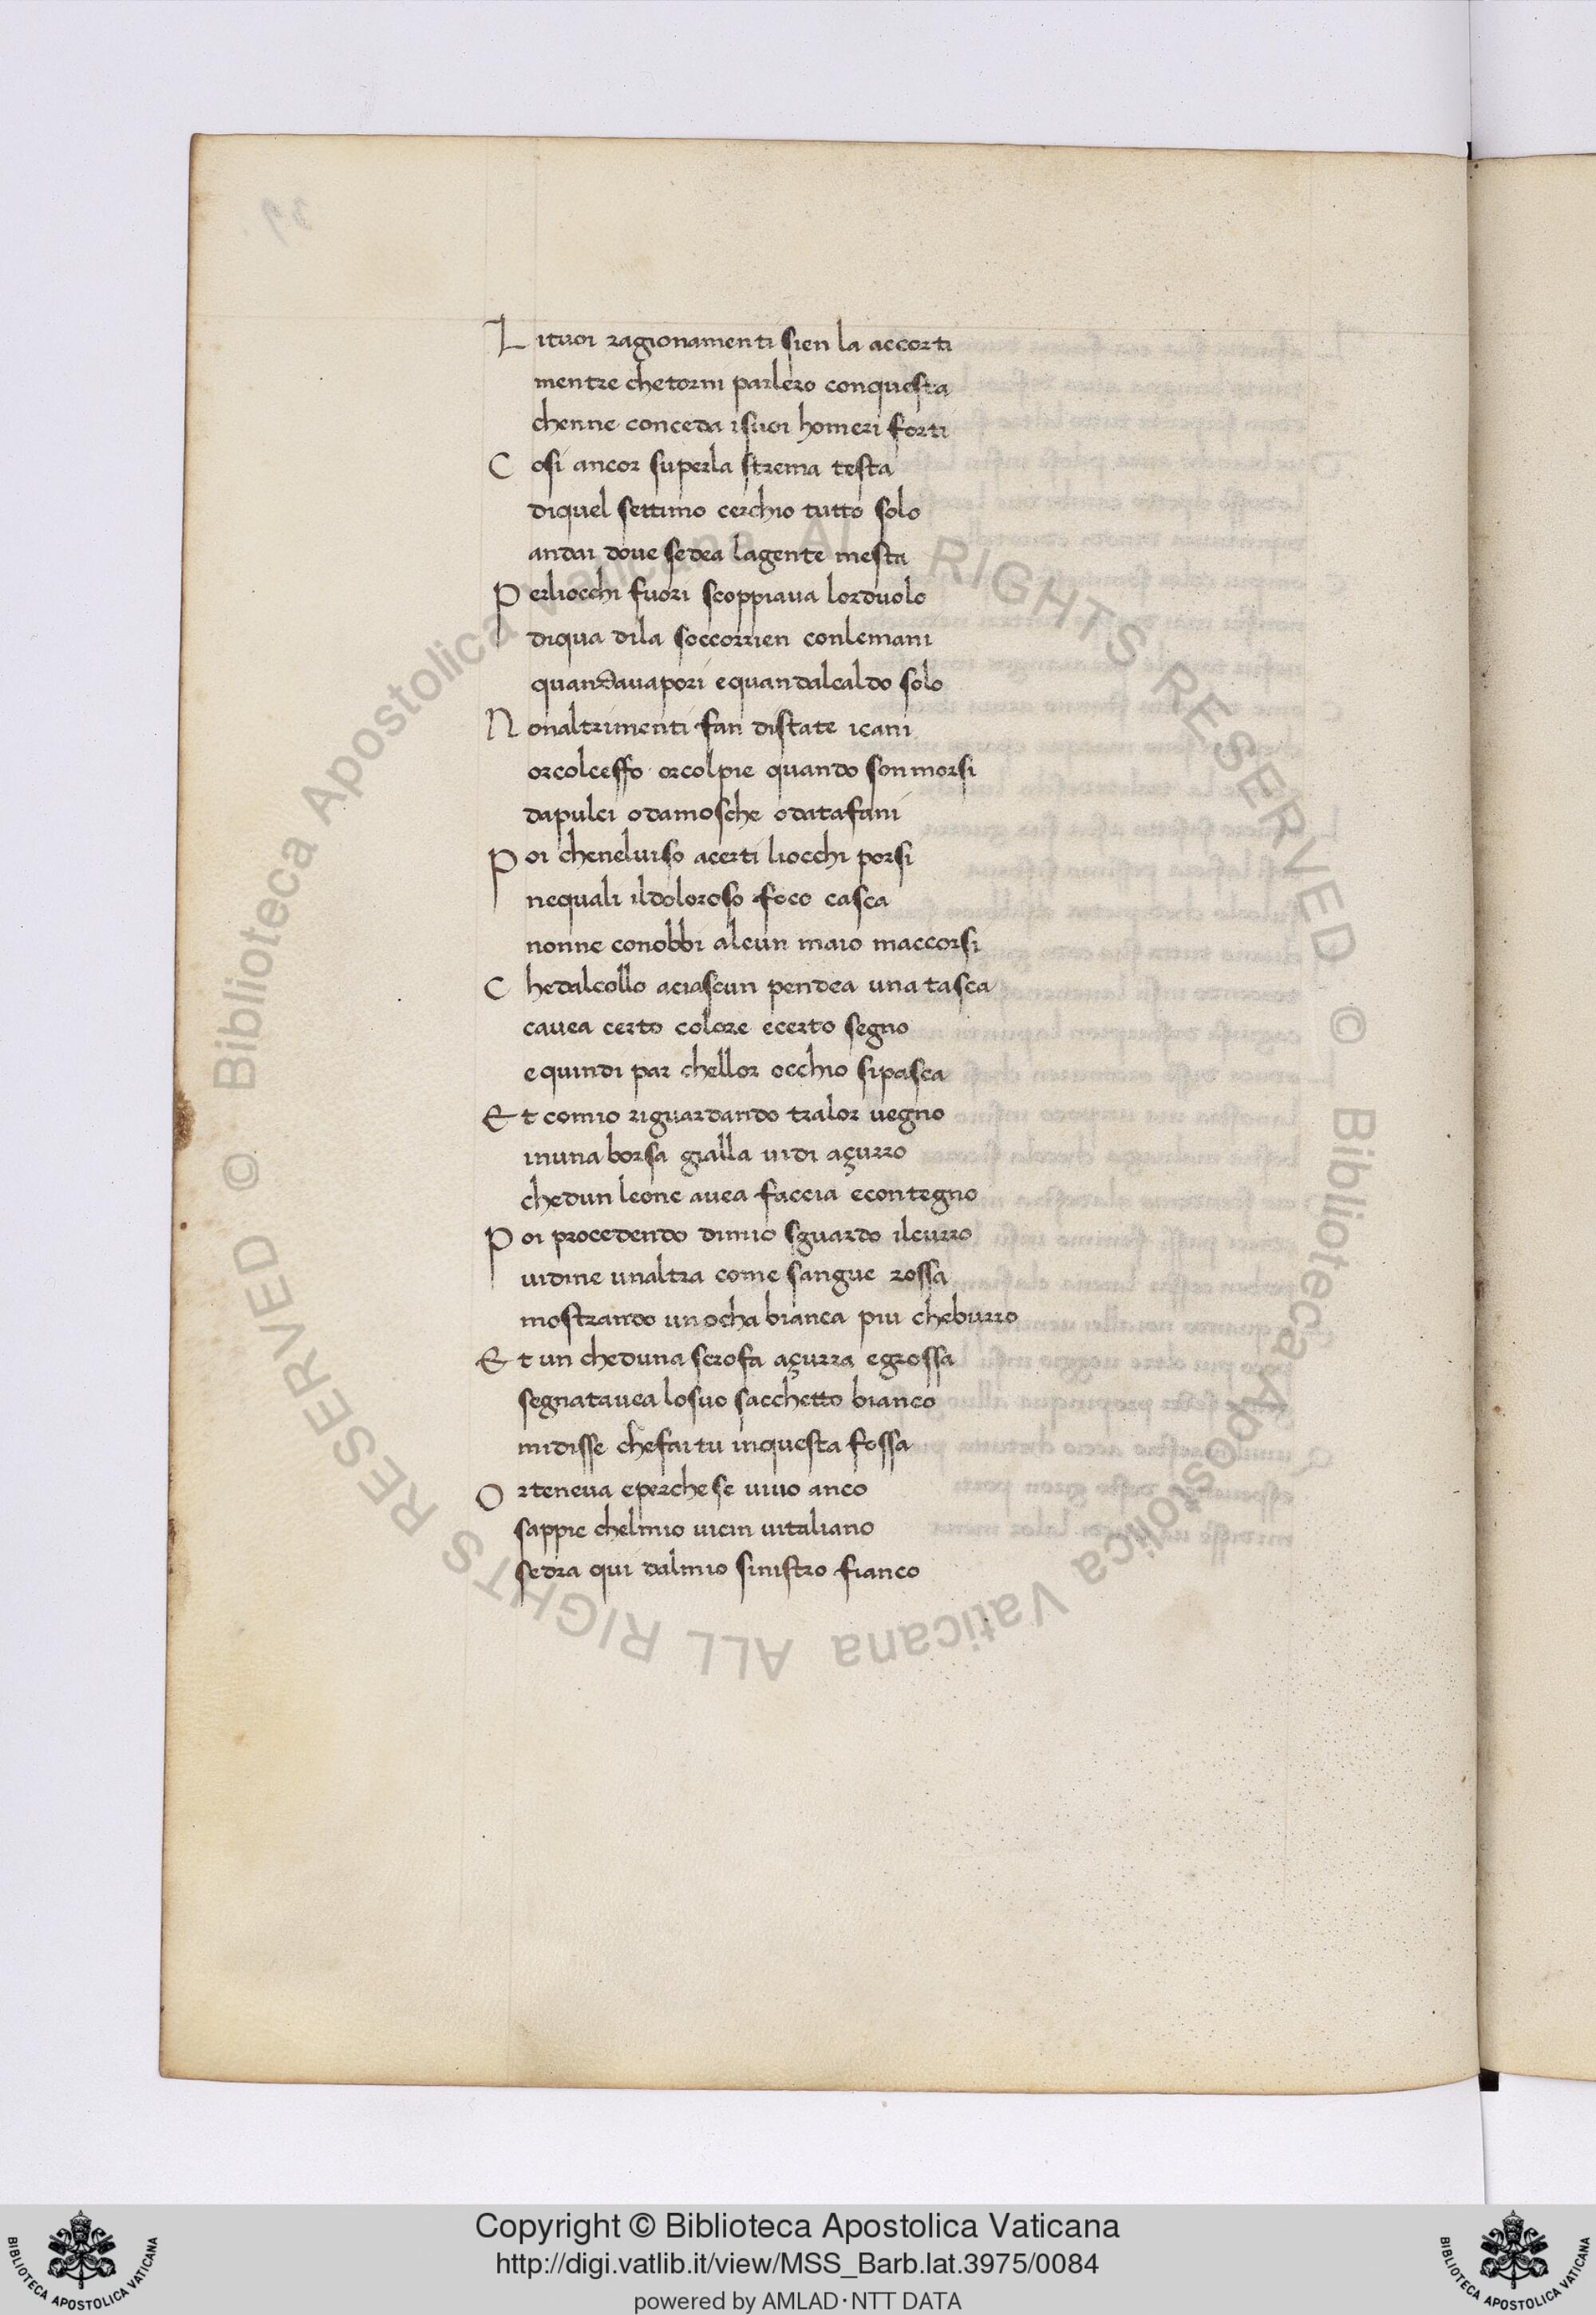 Lituoi ragionamenti sien la accorti
mentre chetorni parlero conquesta
chenne conceda isuoi homeri forti
Cosi ancor superla strema testa
diquel settimo cerchio tutto solo
andai doue sedea lagente mesta
Perliocchi fuori scoppiaua lorduolo
diqua dila soccorrien conlemani
quandauapori equandalcaldo solo
Nonaltrimenti fan distate icani
orcolceffo orcolpie quando sonmorsi
dapulci odamosche odatafani
Poi chenelviso acerti liocchi porsi
nequali ildoloroso foco casca
nonne conobbi alcun maio maccorsi
Chedalcollo aciascun pendea una tasca
cauea certo colore ecerto segno
equindi par chellor occhio sipasca
Et comio riguardando tralor uegno
inuna borsa gialla uidi açurro
chedun leone auea faccia econtegno
Poi procedendo dimio sguardo ilcurro
uidine unaltra come sangue rossa
mostrando un ocha bianca piu cheburro
Et un cheduna scrofa açurra egrossa
segnatauea losuo sacchetto bianco
midisse chefai tu inquesta fossa
Orteneua eperchese uiuo anco
sappie chelmio uicin uitaliano
sedra qui dalmio sinistro fianco
© Biblioteca Apostolica Vaticana ALL RIGHTS RESERVED © Biblioteca Apostolica Vaticana ALL RIGHTS RESERVED
Copyright © Biblioteca Apostolica Vaticana
http://digi.vatlib.it/view/MSS_Barb.lat.3975/0084
powered by AMLAD·NTT DATA
BIBLIOTECA APOSTOLICA VATICANA
BIBLIOTECA APOSTOLICA VATICANA